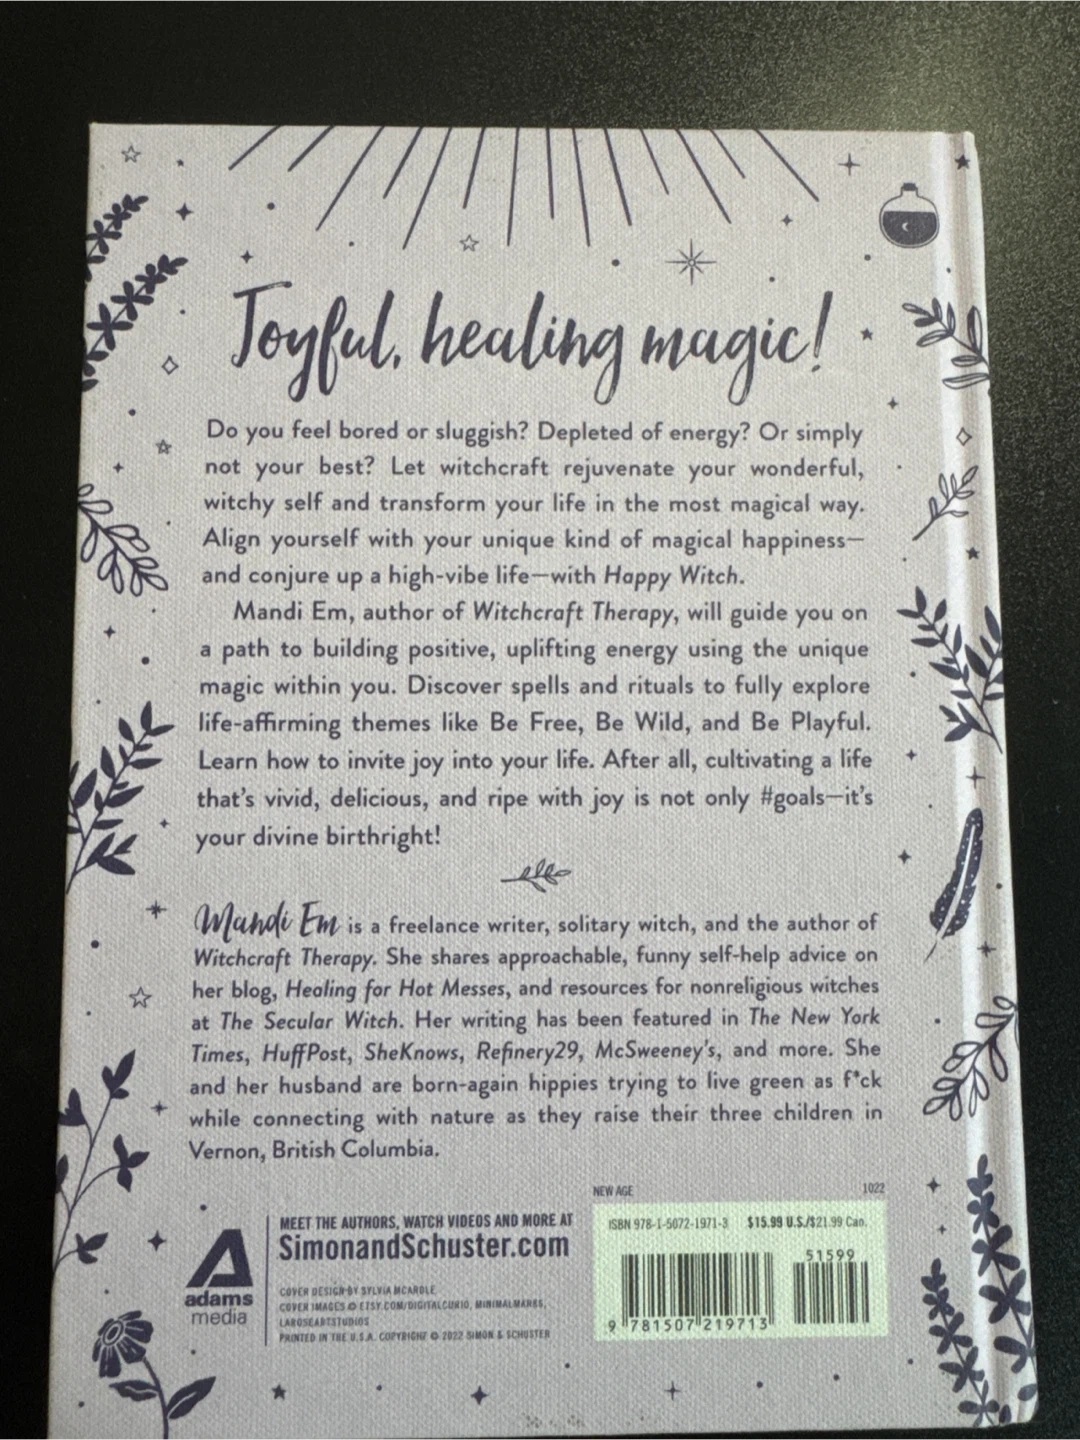 Joyful, healing magic!
Do you feel bored or sluggish? Depleted of energy? Or simply
not your best? Let witchcraft rejuvenate your wonderful,
witchy self and transform your life in the most magical way.
Align yourself with your unique kind of magical happiness—
and conjure up a high-vibe life—with Happy Witch.
Mandi Em, author of Witchcraft Therapy, will guide you on
a path to building positive, uplifting energy using the unique
magic within you. Discover spells and rituals to fully explore
life-affirming themes like Be Free, Be Wild, and Be Playful.
Learn how to invite joy into your life. After all, cultivating a life
that's vivid, delicious, and ripe with joy is not only #goals—it's
your divine birthright!
Mandi Em is a freelance writer, solitary witch, and the author of
Witchcraft Therapy. She shares approachable, funny self-help advice on
her blog, Healing for Hot Messes, and resources for nonreligious witches
at The Secular Witch. Her writing has been featured in The New York
Times, HuffPost, SheKnows, Refinery29, McSweeney's, and more. She
and her husband are born-again hippies trying to live green as f*ck
while connecting with nature as they raise their three children in
Vernon, British Columbia.
NEW AGE 1022
adams
media
MEET THE AUTHORS, WATCH VIDEOS AND MORE AT
SimonandSchuster.com
COVER DESIGN BY SYLVIA MCARDLE
COVER IMAGES © ETSY.COM/DIGITALCURIO, MINIMALMARKS,
LAROSEARTSTUDIOS
PRINTED IN THE U.S.A. COPYRIGHT © 2022 SIMON & SCHUSTER
ISBN 978-1-5072-1971-3 $15.99 U.S./$21.99 Can.
51599
9 781507 219713